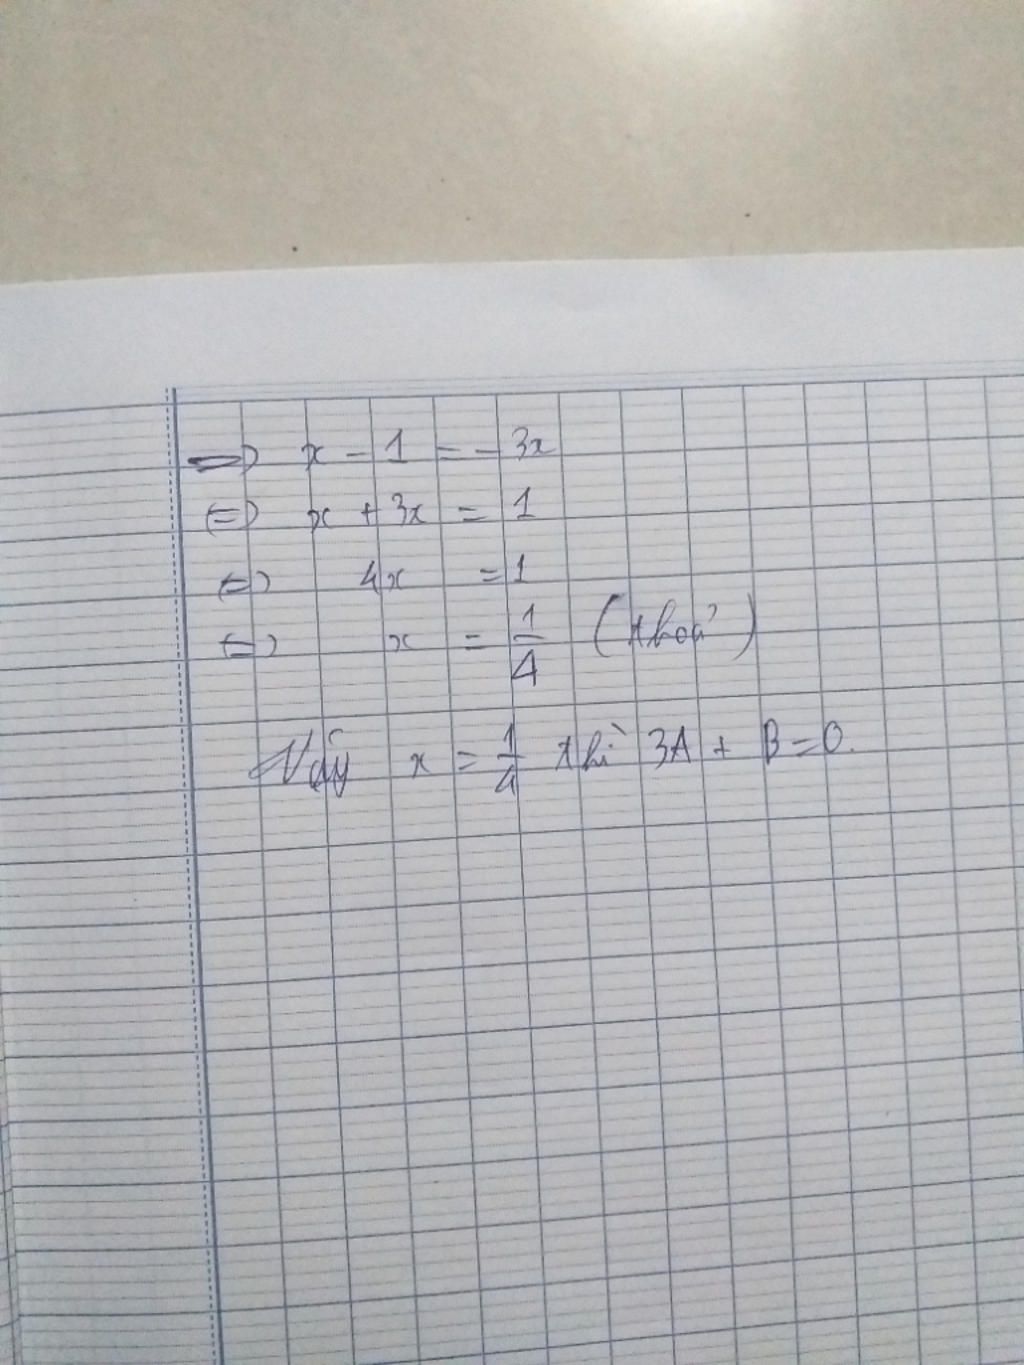 => x - 1 = - 3x
<=> x + 3x = 1
<=> 4x = 1
<=> x = 1/4 (thoả)
Vậy x = 1/4 thì 3A + B = 0.